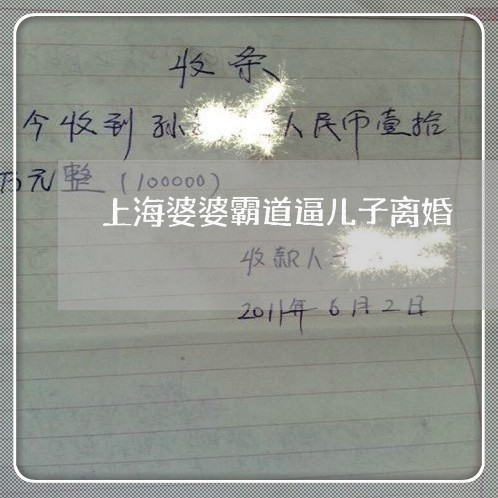 收条
今收到孙 人民币壹拾
万元整（100000）
上海婆婆霸道逼儿子离婚
收款人
2011年6月2日